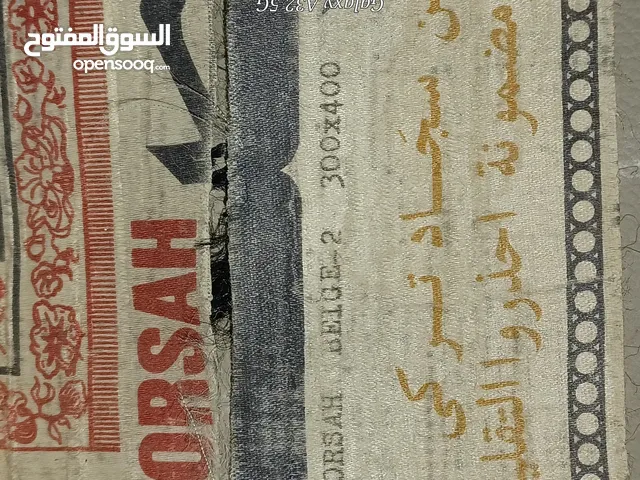 السوق المفتوح
opensooq.com
Galaxy A32 5G
ORSAH
ORSAH BEIGE-2 300x400
سجاد تركي
مضمونة احذروا